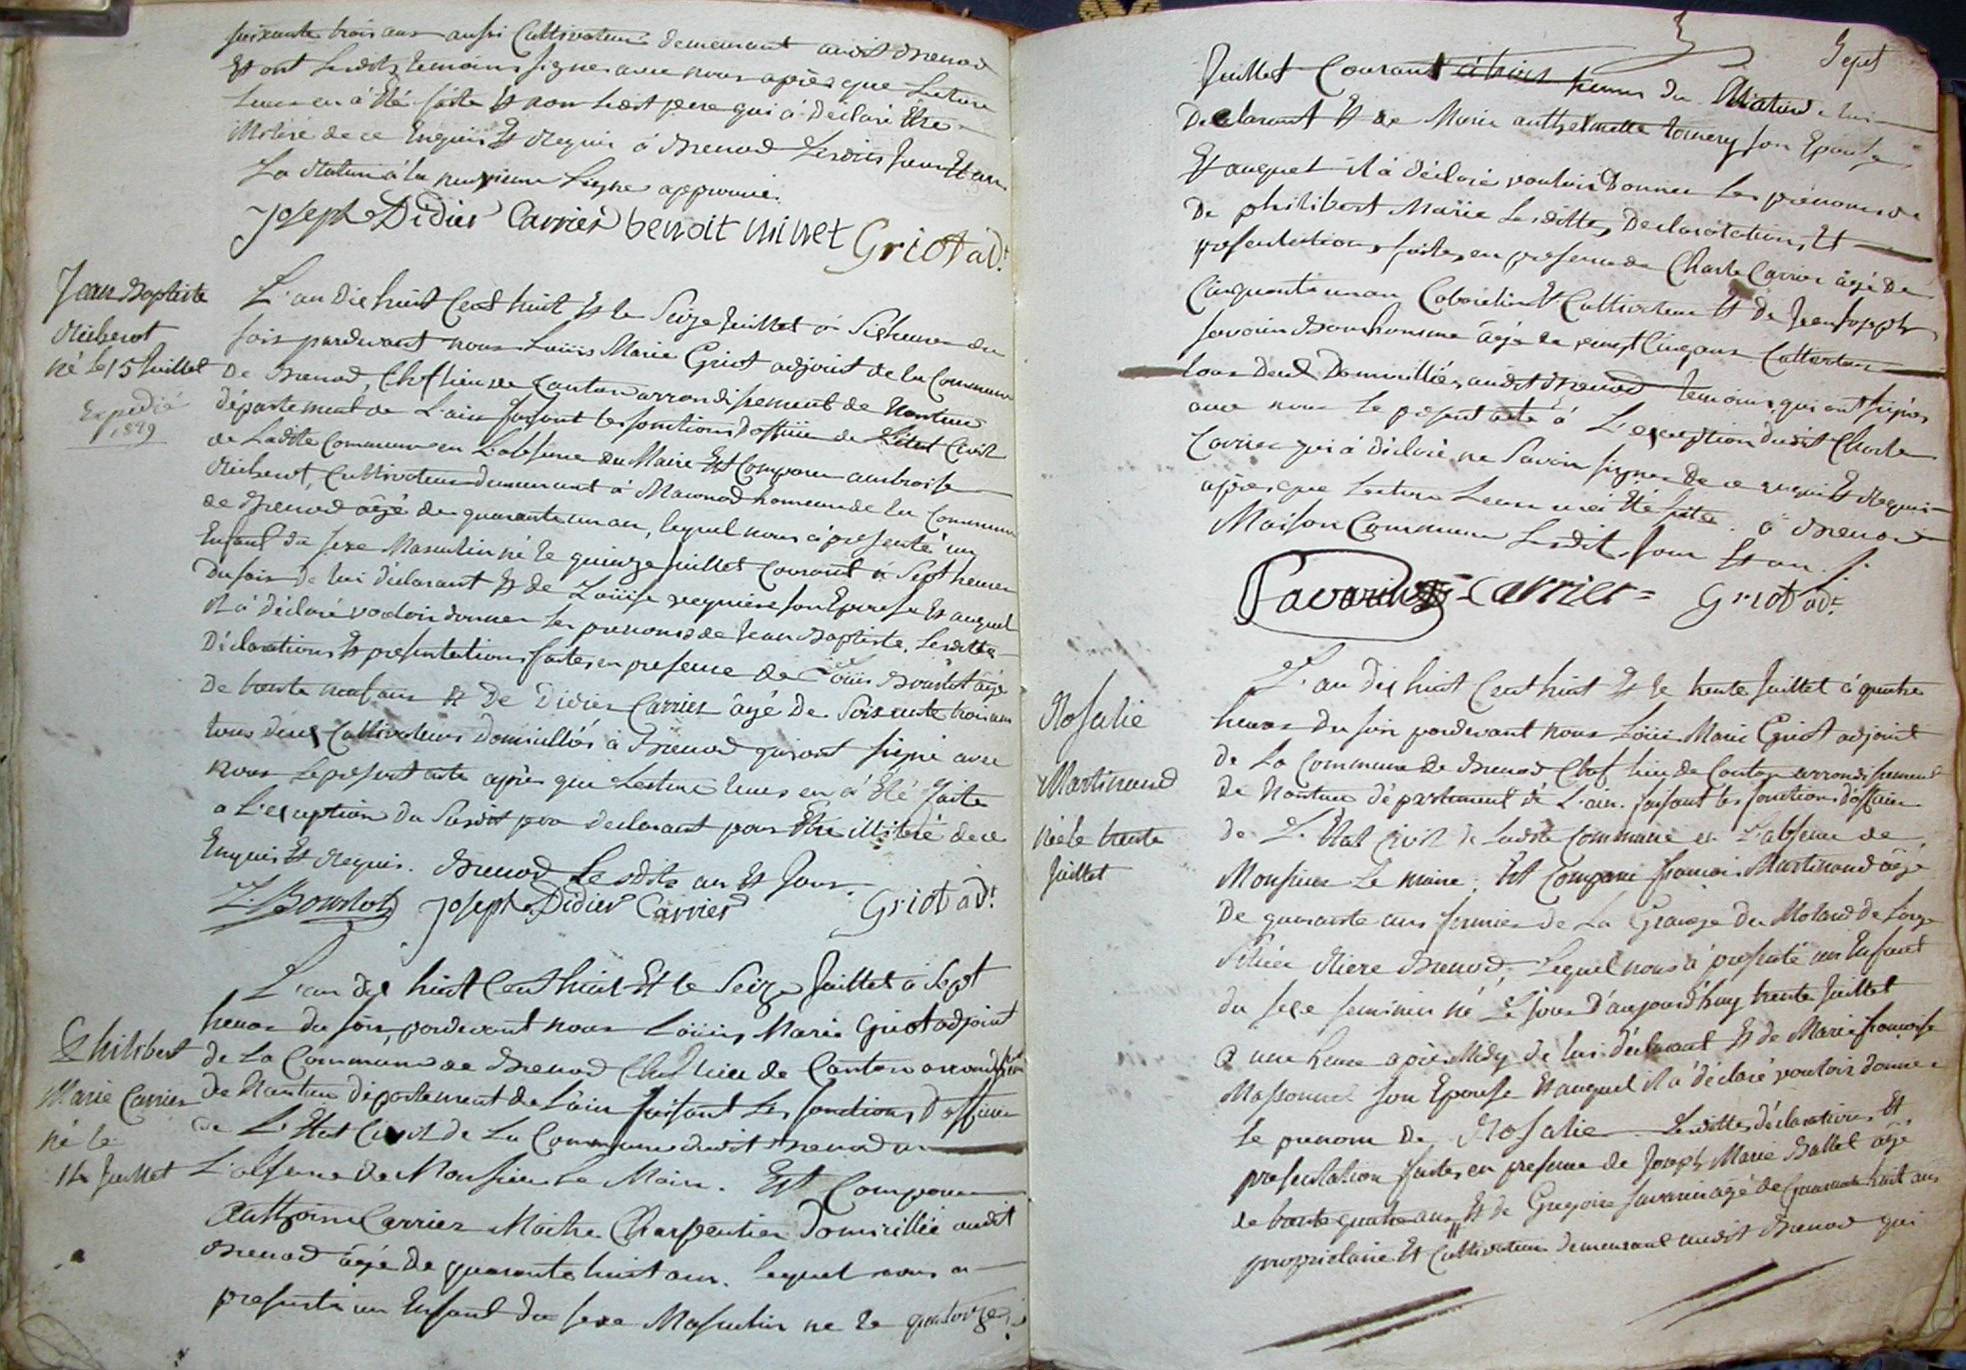 soixante trois ans aussi Cultivateur demeurant audit Brenod
Et ont lesdits temoins signes avec nous après que Lecture
Leur en à Eté faite Et non ledit pere qui à déclaré Etre
illitéré de ce Enquis Et Requis à Brenod Lesdits Jour Et an
La Rature à la ligne approuvée.
Joseph Didier Carrier benoit minet Griot adt.
Jean Baptiste
Richerot
né le 15 Juillet
Expedié
1829
L'an dix huit Cent huit Et le Seize Juillet à Six heures du
soir pardevant nous Loüis Marie Griot adjoint de la Commune
De Brenod, Chef lieu de Canton arrondissement de Nantua
département de L'ain faisant les fonctions d'officier de L'état Civil
de Ladite Commune en L'absence du Maire Est Comparu ambroise
Richerot, Cultivateur demeurant à hameau de la Commune
de Brenod âgé de quarante un an, lequel nous à presenté un
Enfant du sexe Masculin né le quinze Juillet Courant à Sept heures
Du soir de lui déclarant Et de Loüise son Epouse Et auquel
il à déclaré vouloir donner les prenoms de Jean Baptiste, Lesdittes
Déclarations Et presentations faites en presence de Loüis Bourlot âgé
De trente neuf ans Et De Didier Carrier âgé De Soixante trois ans
tous deux Cultivateurs Domicilliés à Brenod qui ont signé avec
Nous Le present acte après que Lecture leurs en à Eté faite
a L'exception du Susdit pere declarant pour Etre illitéré de ce
Enquis Et Requis. Brenod Lesdits an Et Jour.
L. Bourlot Joseph Didier Carrier Griot adt.
Philibert
Marie Carrier
né le
14 Juillet
L'an dix huit Cent huit Et le Seize Juillet à Sept
heures du soir, pardevant nous Loüis Marie Griot adjoint
de La Commune de Brenod Chef lieu de Canton arrondissement
de Nantua département de L'ain faisant Les fonctions D'officier
de L'Etat Civil de La Commune dudit Brenod en
L'absence de Monsieur Le Maire. Est Comparu
Carrier Maitre Charpentier Domicillié audit
Brenod âgé De quarante huit ans. lequel nous a
presenté un Enfant du sexe Masculin né le quatorze
Sept
Juillet Courant du Matin de lui
Declarant Et de Marie anthelmette son Epouse
Et auquel il à déclaré vouloir Donner Les prénoms
De philibert Marie Lesdittes Declarations Et
presentations faites en presence de Charle Carrier âgé De
Cinquante un an Et Cultivateur Et de Jean Joseph
Savarin Bonhomme âgé de vingt Cinq ans Cultivateur
tous deux Domicilliés audit Brenod temoins qui ont signés
avec nous Le present acte à L'exception dudit Charle
Carrier qui à déclaré ne Savoir signer De ce Enquis Et Requis
après que Lecture Leur en à Eté faite. à Brenod
Maison Commune Lesdits Jour Et an.
Savarin Carrier Griot adt.
Rosalie
Martinand
née le trente
Juillet
L'an dix huit Cent huit Et le trente Juillet à quatre
heures du soir pardevant nous Loüis Marie Griot adjoint
de La Commune de Brenod Chef lieu de Canton arrondissement
De Nantua département de L'ain. faisant les fonctions d'officier
de L'Etat Civil de Ladite Commune en L'absence de
Monsieur Le maire. Est Comparu francois Martinand âgé
De quarante ans fermier de La Grange du
Située Riere Brenod, Lequel nous à presenté un Enfant
du sexe feminin né Le Jour D'aujourd'huy trente Juillet
à une heure apres Midy de lui déclarant Et de Marie françoise
Massonnet son Epouse Et auquel il à déclaré vouloir donner
le prenom De Rosalie Lesdittes déclarations Et
presentation faites en presence de Joseph Marie Ballet âgé
de trente quatre ans Et de Gregoire Savarin âgé de quarante huit ans
proprietaire Et Cultivateur demeurant audit Brenod qui